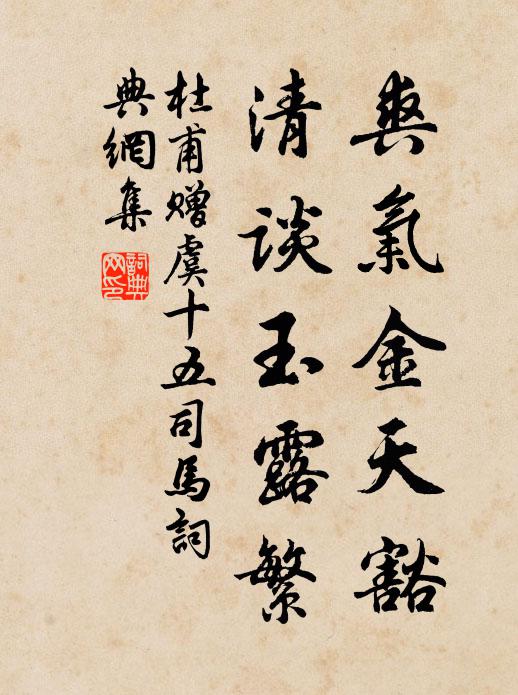 爽氣金天豁
清談玉露繁
杜甫贈虞十五司馬詞
典網集
詞典網印